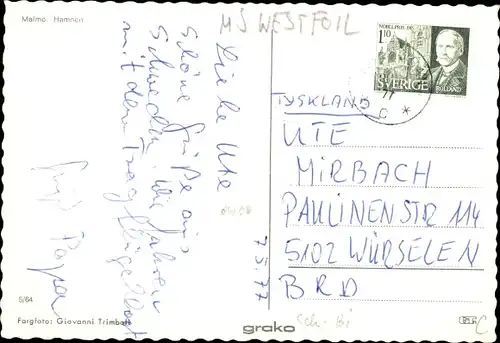 Malmö. Hamnen
MS WESTFOIL
Liebe Ute
Schöne Grüße aus
Schweden. Wir fahren
mit dem Tragflügelboot
Gruß Papa
7.5.77
NOBELPRIS 1915
1.10
SVERIGE
ROLLAND
77
C *
TYSKLAND
UTE
MIRBACH
PAULINENSTR 114
5102 WÜRSELEN
BRD
5/64
Färgfoto: Giovanni Trimboli
grako
Sch-Bi
C